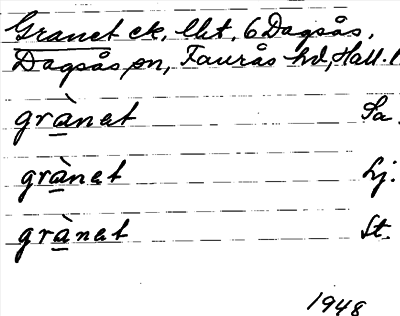 Granet ek. lht. 6 Dagsås,
Dagsås sn, Faurås hd, Hall. l
grànet Sa.
grànet Lj.
grànet St.
1948